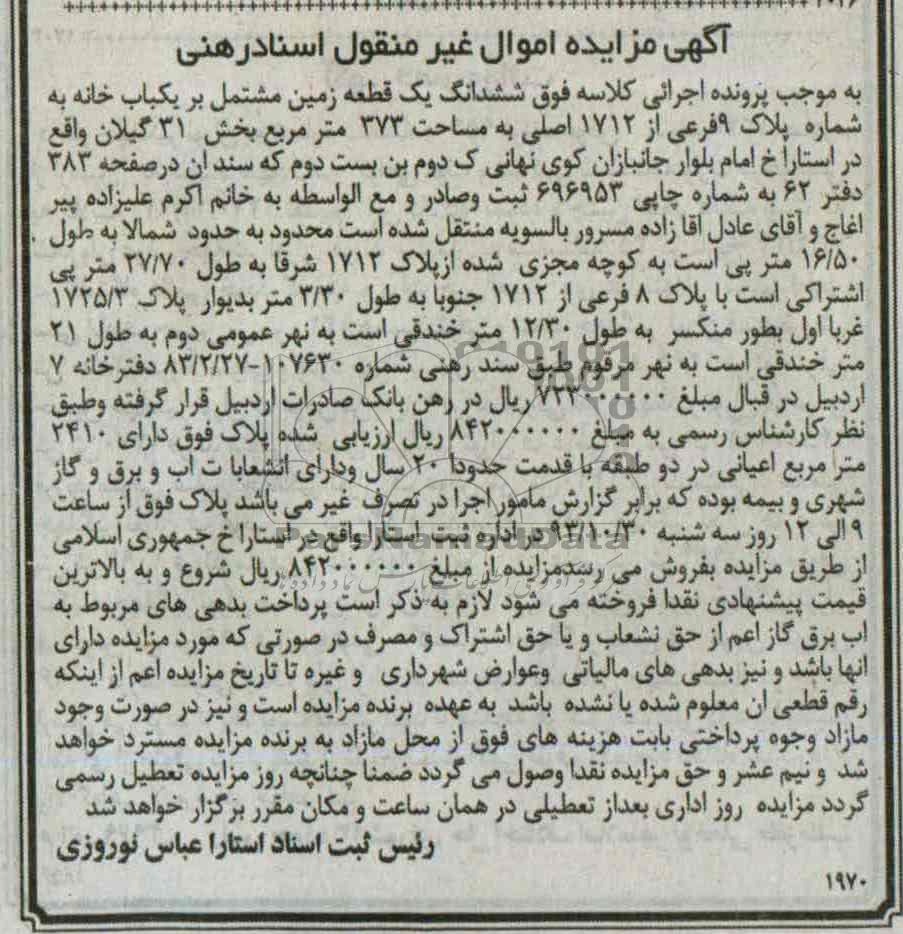 ۲۰۲۶
آگهی مزایده اموال غیر منقول اسنادرهنی
به موجب پرونده اجرائی کلاسه فوق ششدانگ یک قطعه زمین مشتمل بر یکباب خانه به
شماره پلاک ۹فرعی از ۱۷۱۲ اصلی به مساحت ۳۷۳ متر مربع بخش ۳۱ گیلان واقع
در استارا خ امام بلوار جانبازان کوی نهانی ک دوم بن بست دوم که سند ان درصفحه ۳۸۳
دفتر ۶۲ به شماره چاپی ۶۹۶۹۵۳ ثبت وصادر و مع الواسطه به خانم اکرم علیزاده پیر
اغاج و آقای عادل اقا زاده مسرور بالسویه منتقل شده است محدود به حدود شمالا به طول
۱۶/۵۰ متر پی است به کوچه مجزی شده ازپلاک ۱۷۱۲ شرقا به طول ۲۷/۷۰ متر پی
اشتراکی است با پلاک ۸ فرعی از ۱۷۱۲ جنوبا به طول ۳/۳۰ متر بدیوار پلاک ۱۷۲۵/۳
غربا اول بطور منکسر به طول ۱۲/۳۰ متر خندقی است به نهر عمومی دوم به طول ۲۱
متر خندقی است به نهر مرقوم طبق سند رهنی شماره ۱۰۷۶۳۰-۸۳/۲/۲۷ دفترخانه ۷
اردبیل در قبال مبلغ ۷۳۴۰۰۰۰۰۰ ریال در رهن بانک صادرات اردبیل قرار گرفته وطبق
نظر کارشناس رسمی به مبلغ ۸۴۲۰۰۰۰۰۰ ریال ارزیابی شده پلاک فوق دارای ۲۴۱۰
مترا مربع اعیانی در دو طبقه با قدمت حدودا ۲۰ سال ودارای انشعابا ت اب و برق و گاز
شهری و بیمه بوده که برابر گزارش مامور اجرا در تصرف غیر می باشد پلاک فوق از ساعت
۹ الی ۱۲ روز سه شنبه ۹۳/۱۰/۳۰ در اداره ثبت استارا واقع در استارا خ جمهوری اسلامی
از طریق مزایده بفروش می رسدمزایده از مبلغ ۸۴۲۰۰۰۰۰۰ ریال شروع و به بالاترین
قیمت پیشنهادی نقدا فروخته می شود لازم به ذکر است پرداخت بدهی های مربوط به
اب برق گاز اعم از حق نشعاب و یا حق اشتراک و مصرف در صورتی که مورد مزایده دارای
انها باشد و نیز بدهی های مالیاتی وعوارض شهرداری و غیره تا تاریخ مزایده اعم از اینکه
رقم قطعی ان معلوم شده یا نشده باشد به عهده برنده مزایده است و نیز در صورت وجود
مازاد وجوه پرداختی بابت هزینه های فوق از محل مازاد به برنده مزایده مسترد خواهد
شد و نیم عشر و حق مزایده نقدا وصول می گردد ضمنا چنانچه روز مزایده تعطیل رسمی
گردد مزایده روز اداری بعداز تعطیلی در همان ساعت و مکان مقرر برگزار خواهد شد
رئیس ثبت اسناد استارا عباس نوروزی
۱۹۷۰